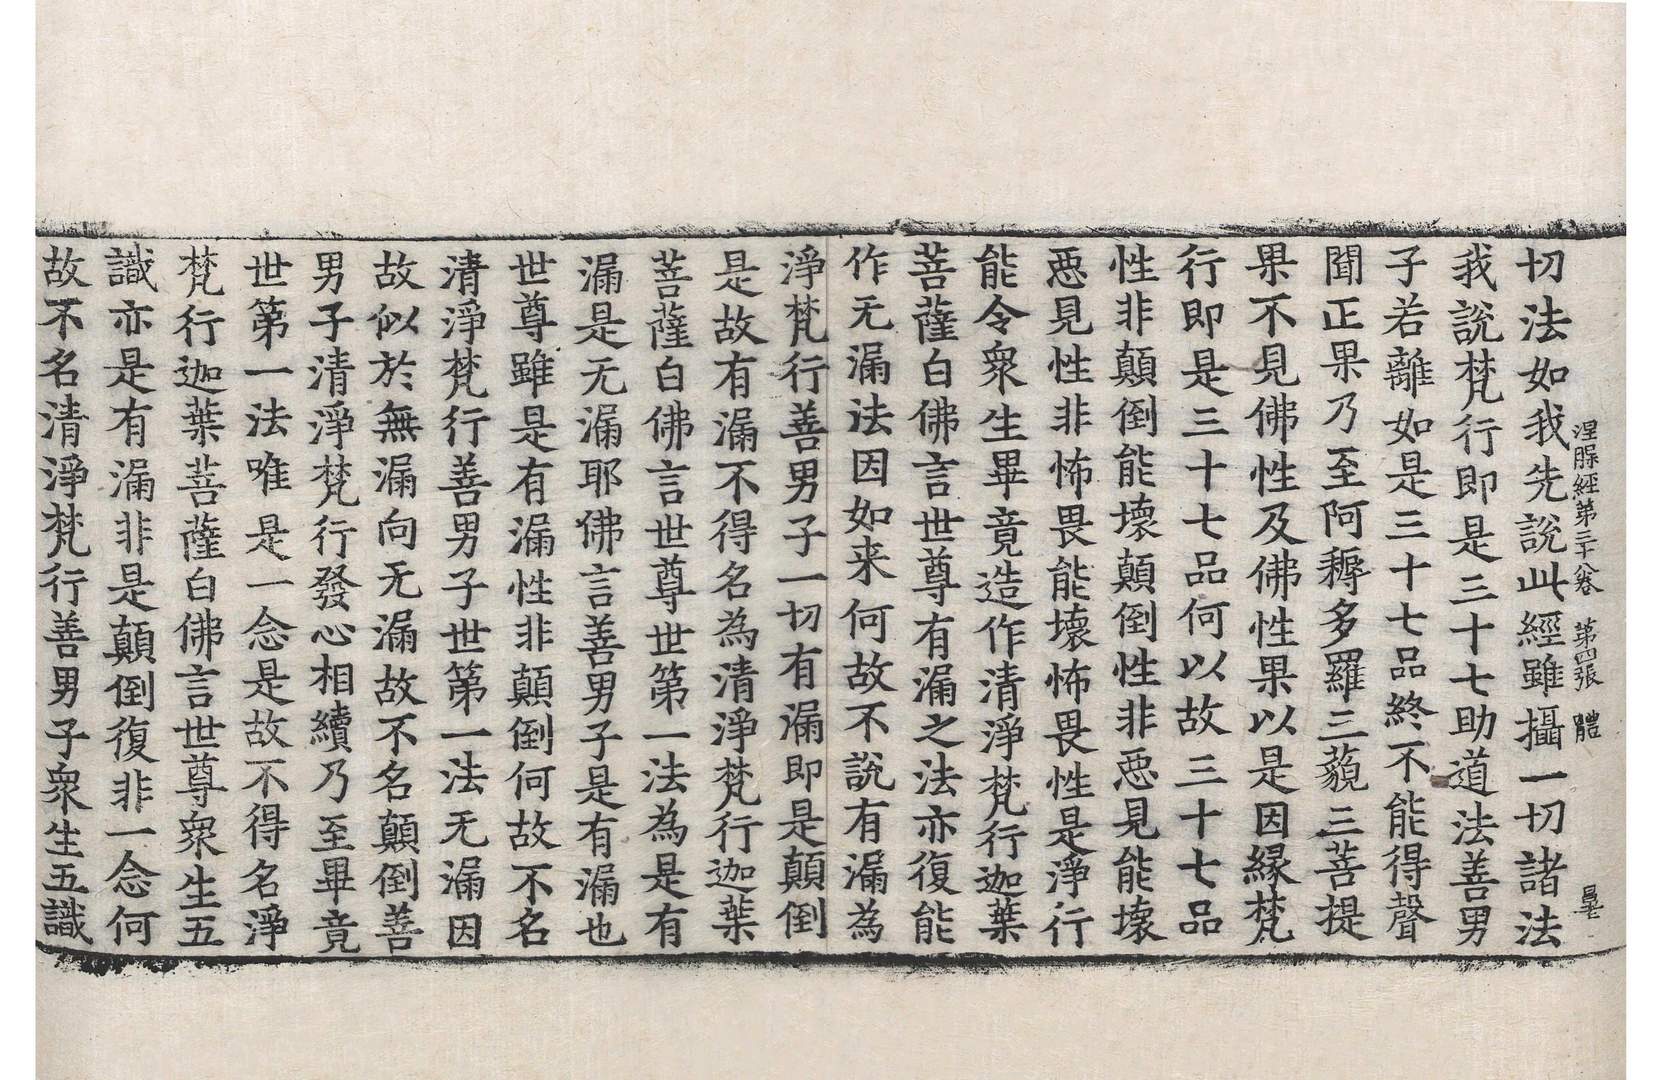 涅槃經第三十八卷　第四張　體
切法如我先說此經雖攝一切諸法
我說梵行即是三十七助道法善男
子若離如是三十七品終不能得聲
聞正果乃至阿耨多羅三藐三菩提
果不見佛性及佛性果以是因縁梵
行即是三十七品何以故三十七品
性非顛倒能壞顛倒性非惡見能壞
惡見性非怖畏能壞怖畏性是淨行
能令衆生畢竟造作清淨梵行迦葉
菩薩白佛言世尊有漏之法亦復能
作无漏法因如来何故不說有漏為
淨梵行善男子一切有漏即是顛倒
是故有漏不得名為清淨梵行迦葉
菩薩白佛言世尊世第一法為是有
漏是无漏耶佛言善男子是有漏也
世尊雖是有漏性非顛倒何故不名
清淨梵行善男子世第一法无漏因
故似於無漏向无漏故不名顛倒善
男子清淨梵行發心相續乃至畢竟
世第一法唯是一念是故不得名淨
梵行迦葉菩薩白佛言世尊衆生五
識亦是有漏非是顛倒復非一念何
故不名清淨梵行善男子衆生五識